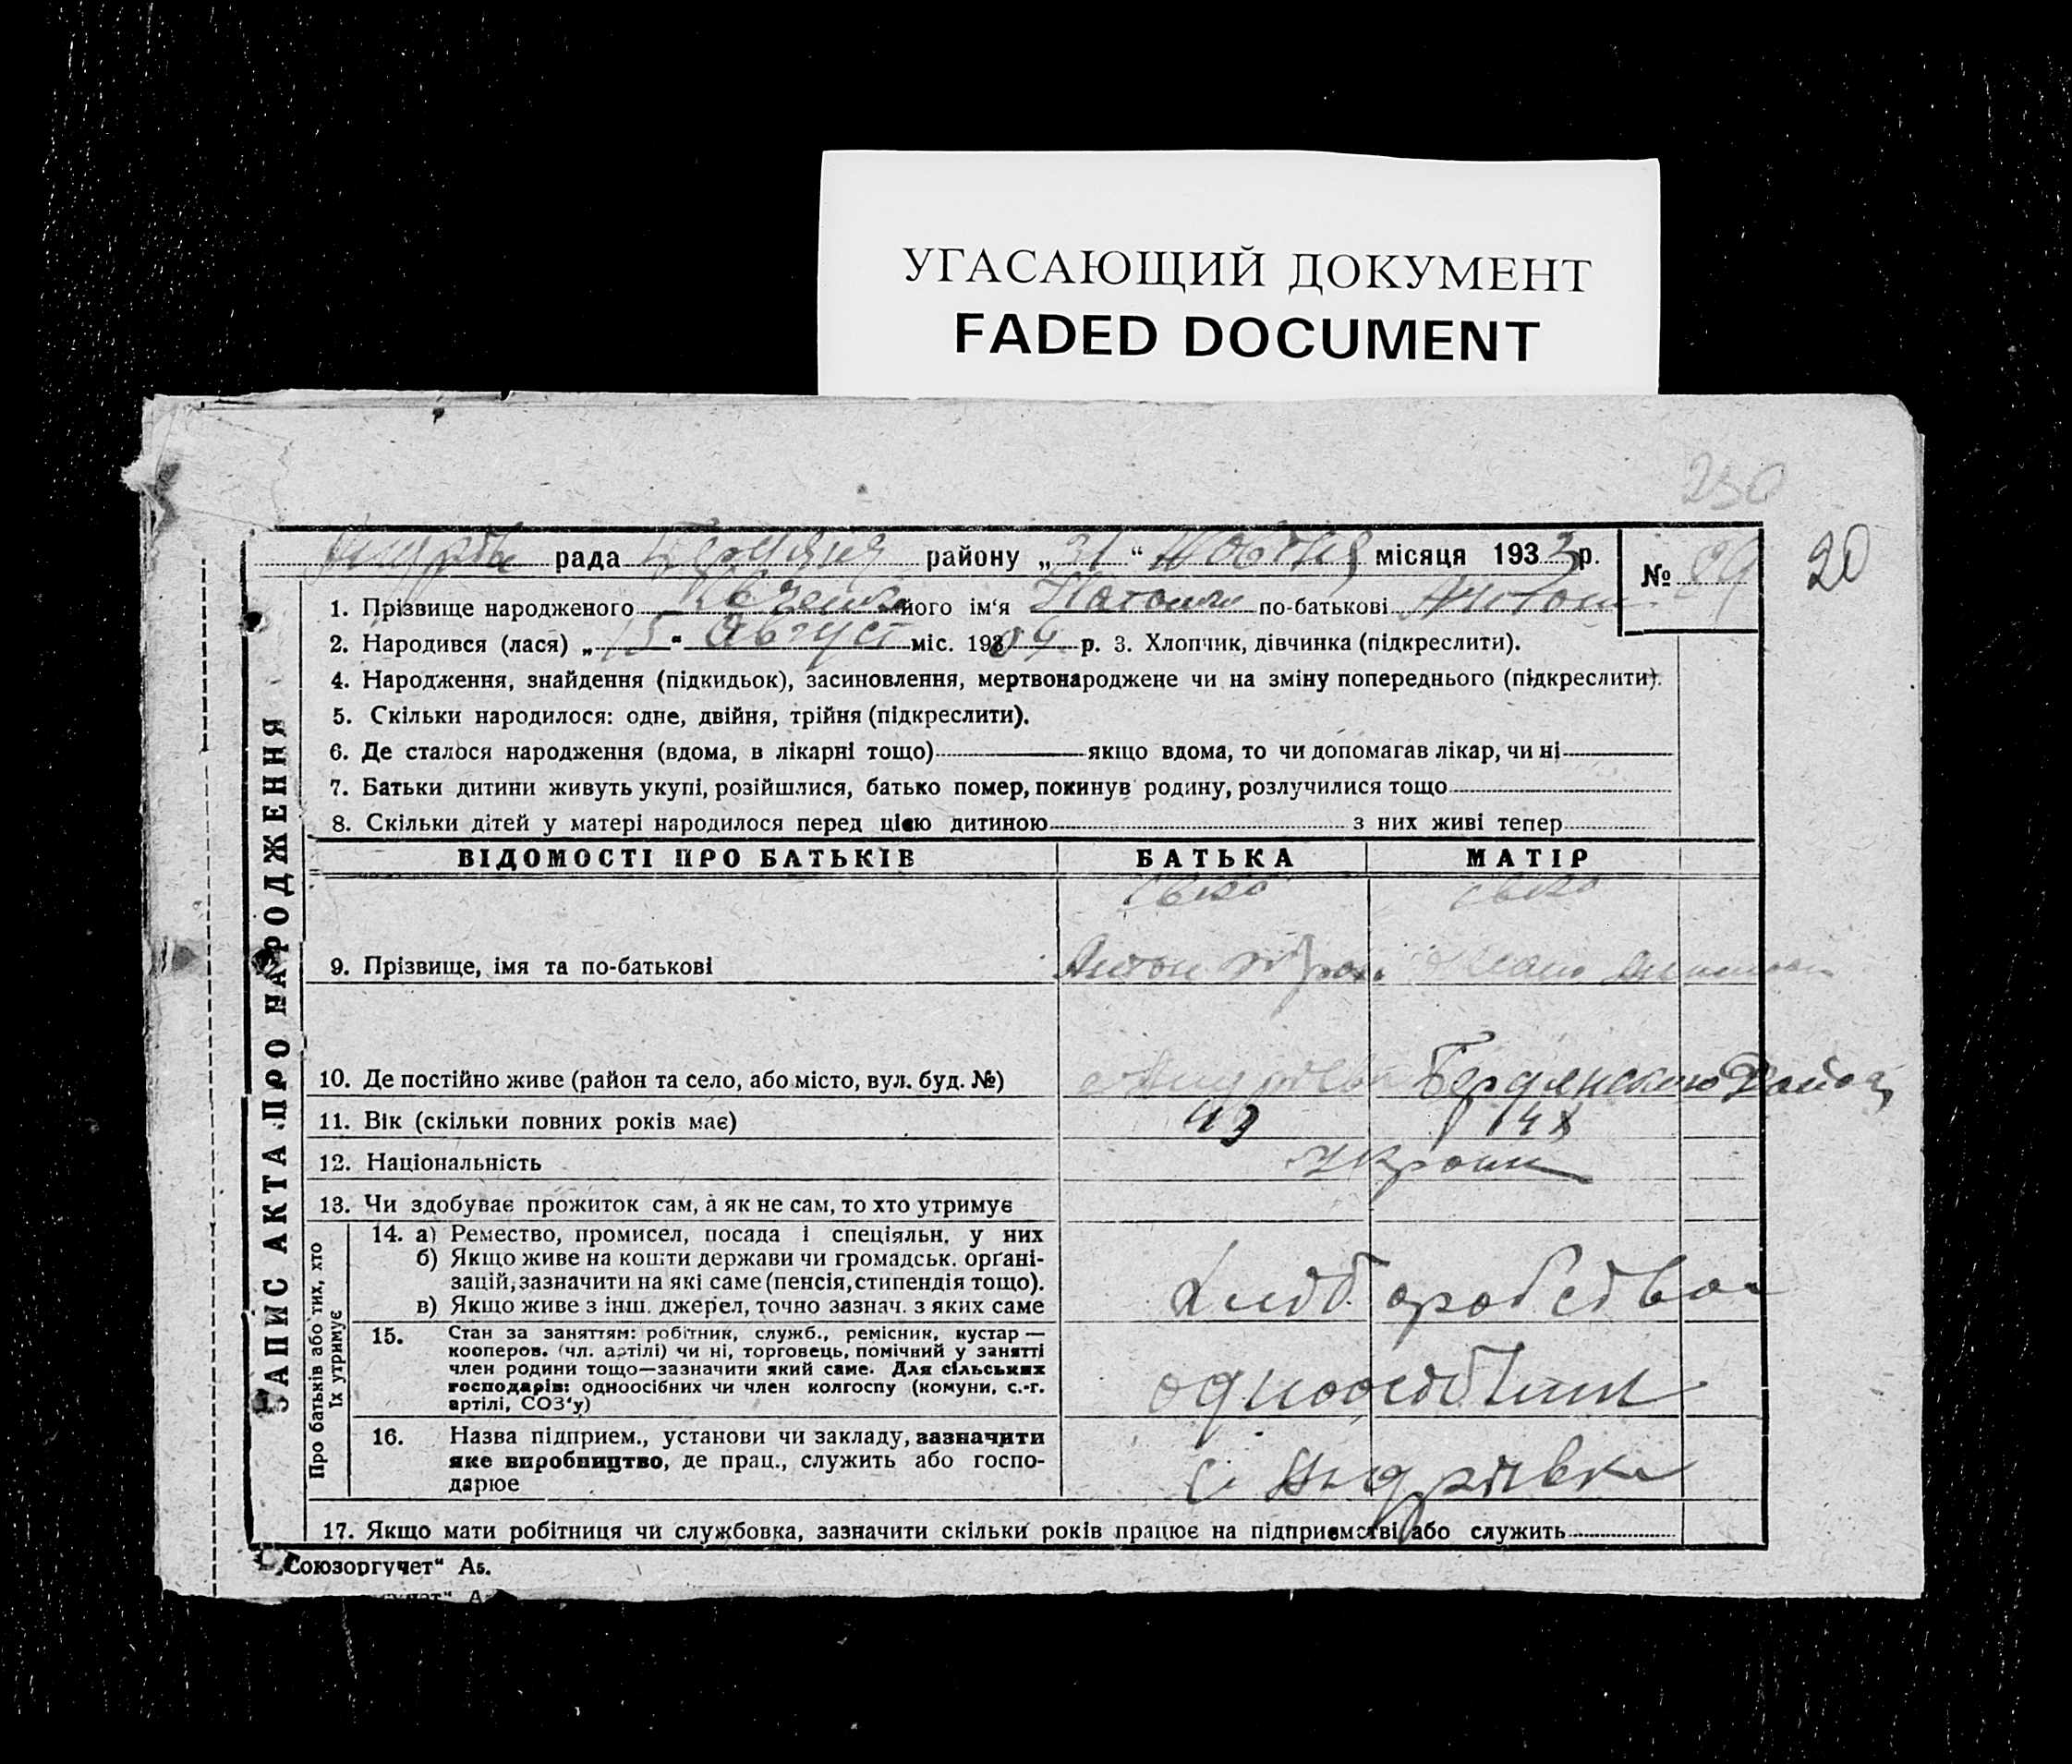 УГАСАЮЩИЙ ДОКУМЕНТ
FADED DOCUMENT
230
20
рада района „31“ Жовтня місяця 1933 р.
№ 89
1. Прізвище народженого його ім‘я по-батькові Антон
2. Народився (лася) „15“ Август міс. 1909 р. 3. Хлопчик, дівчинка (підкреслити).
4. Народження, знайдення (підкидьок), засиновлення, мертвонароджене чи на зміну попереднього (підкреслити).
5. Скільки народилося: одне, двійня, трійня (підкреслити).
6. Де сталося народження (вдома, в лікарні тощо) якщо вдома, то чи допомагав лікар, чи ні
7. Батьки дитини живуть укупі, розійшлися, батько помер, покинув родину, розлучилися тощо
8. Скільки дітей у матері народилося перед цією дитиною з них живі тепер
ЗАПИС АКТА ПРО НАРОДЖЕННЯ
ВІДОМОСТІ ПРО БАТЬКІВ БАТЬКА МАТІР
9. Прізвище, імя та по-батькові Антон
10. Де постійно живе (район та село, або місто, вул. буд. №) Бердянського Району
11. Вік (скільки повних років має) 49 48
12. Національність Украин
13. Чи здобуває прожиток сам, а як не сам, то хто утримує
Про батьків або тих, хто
їх утримує
14. а) Ремество, промисел, посада і спеціяльн. у них
б) Якщо живе на кошти держави чи громадськ. орґані-
зацій, зазначити на які саме (пенсія, стипендія тощо).
в) Якщо живе з інш. джерел, точно зазнач. з яких саме
Хліборобство
15. Стан за заняттям: робітник, служб., ремісник, кустар —
кооперов. (чл. артілі) чи ні, торговець, помічний у занятті
член родини тощо—зазначити який саме. Для сільських
господарів: одноосібних чи член колгоспу (комуни, с.-г.
артілі, СОЗ‘у)
одноосібник
16. Назва підприєм., установи чи закладу, зазначити
яке виробництво, де прац., служить або госпо-
дарює
с. Андріївка
17. Якщо мати робітниця чи службовка, зазначити скільки років працює на підприємстві або служить
„Союзоргучет“ Аб.